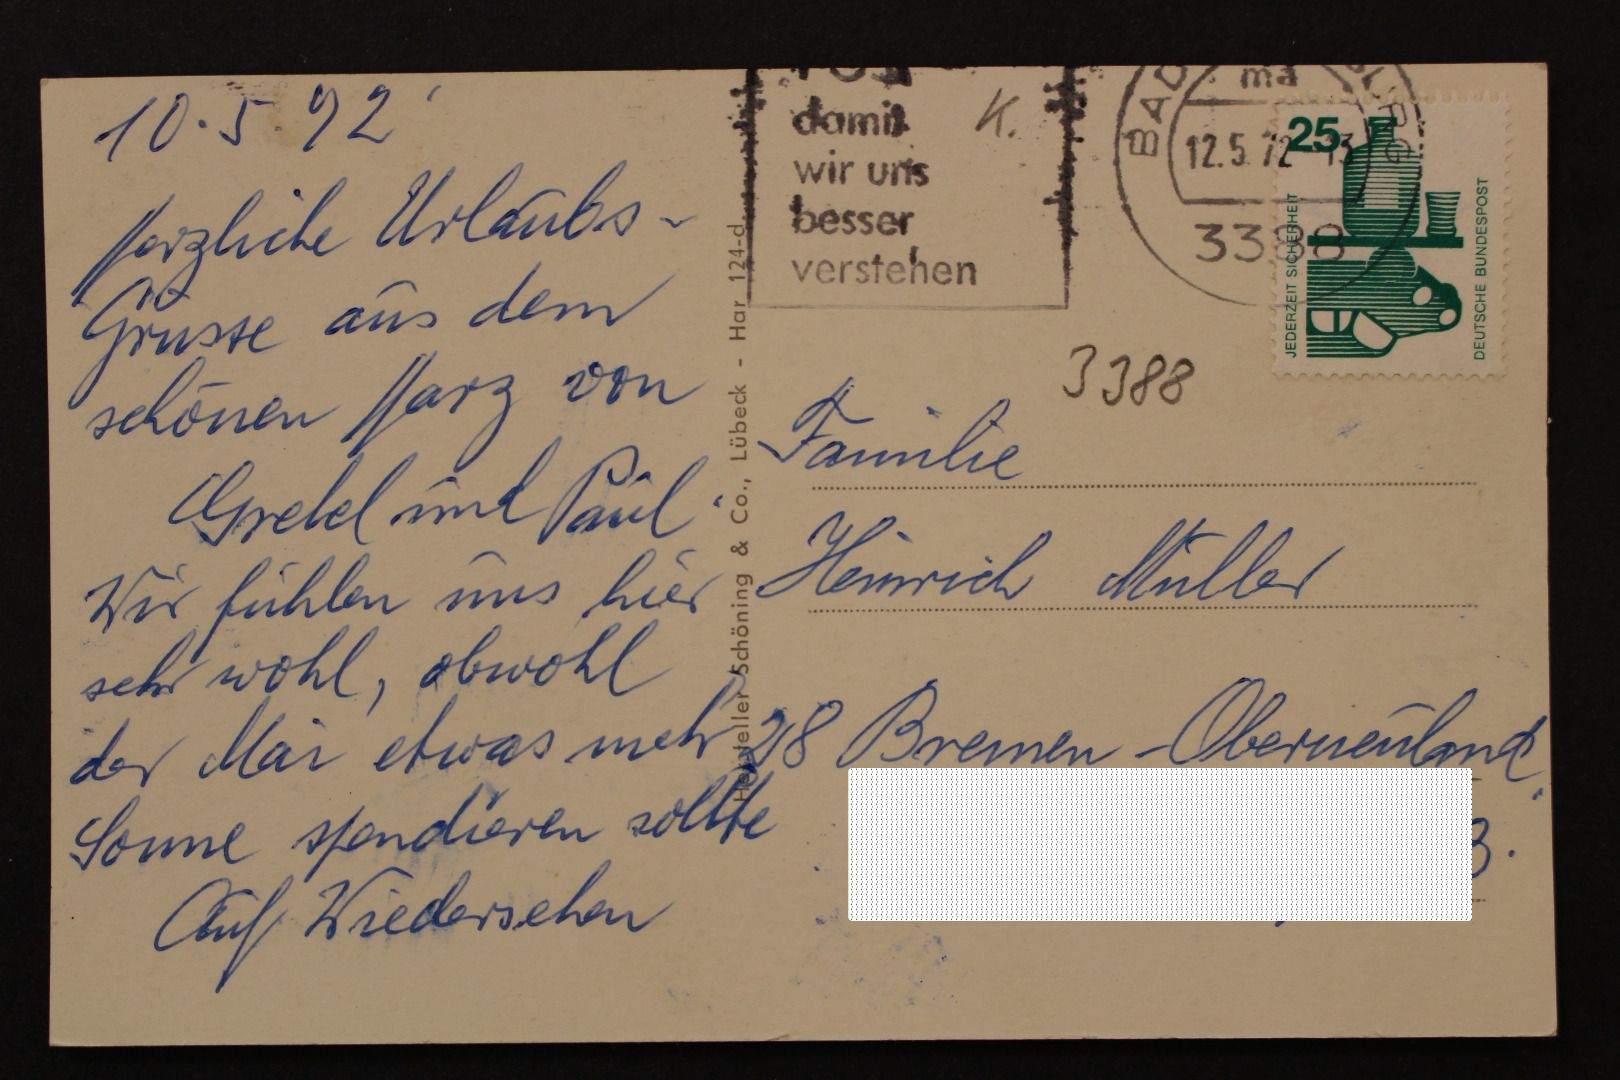 10.5.72
Herzliche Urlaubs-
Grüsse aus dem
schönen Harz von
Gretel und Paul.
Wir fühlen uns hier
sehr wohl, obwohl
der Mai etwas mehr
Sonne spendieren sollte
Auf Wiedersehen
Hersteller Schöning & Co., Lübeck - Har 124-d
damit
wir uns
besser
verstehen
K.
BAD
ma
12.5.72-13
3388
25
JEDERZEIT SICHERHEIT
DEUTSCHE BUNDESPOST
3388
Familie
Heinrich Müller
28 Bremen-Oberneuland
3.